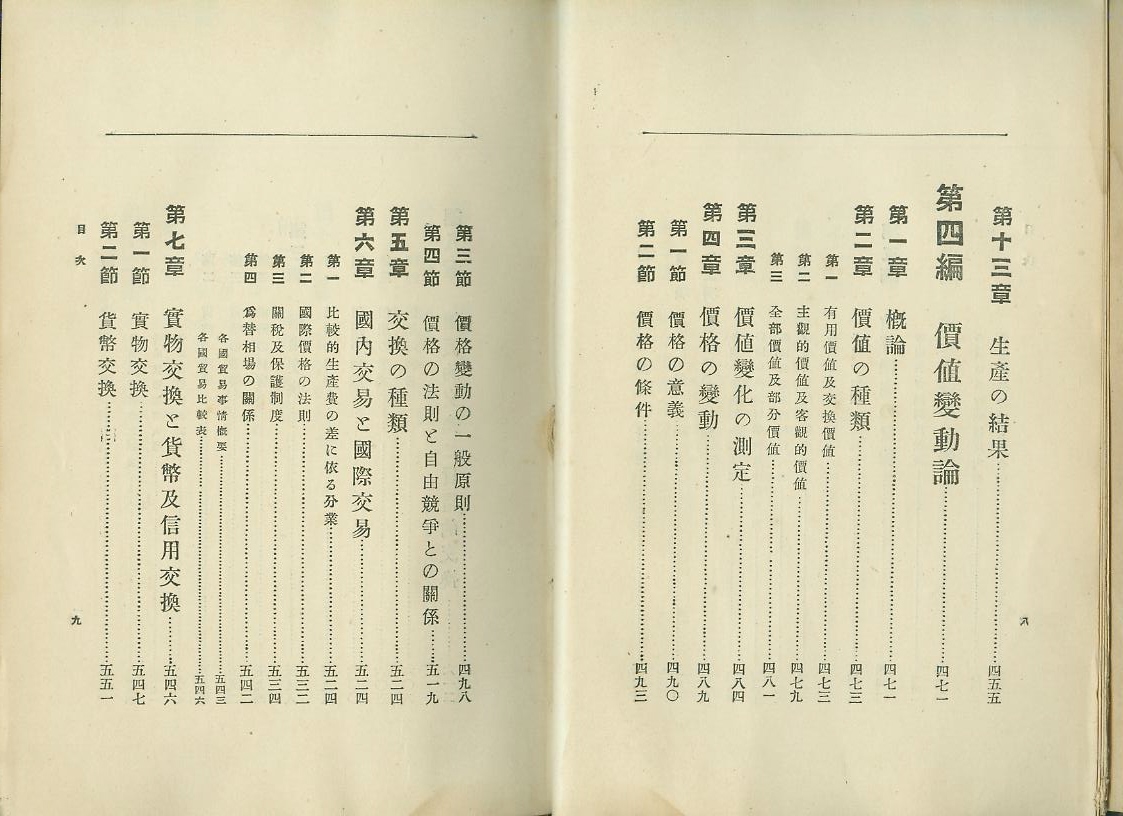 第十三章　生產の結果……四五五
第四編　價値變動論……四七一
第一章　概論……四七一
第二章　價値の種類……四七三
第一　有用價値及交換價値……四七三
第二　主觀的價値及客觀的價値……四七九
第三　全部價値及部分價値……四八一
第三章　價値變化の測定……四八四
第四章　價格の變動……四八九
第一節　價格の意義……四九〇
第二節　價格の條件……四九三
八
第三節　價格變動の一般原則……四九八
第四節　價格の法則と自由競爭との關係……五一九
第五章　交換の種類……五二四
第六章　國內交易と國際交易……五二四
第一　比較的生產費の差に依る分業……五二四
第二　國際價格の法則……五三一
第三　關稅及保護制度……五三四
第四　爲替相場の關係……五四二
各國貿易事情概要……五四三
各國貿易比較表……五四六
第七章　實物交換と貨幣及信用交換……五四六
第一節　實物交換……五四七
第二節　貨幣交換……五五一
目次
九